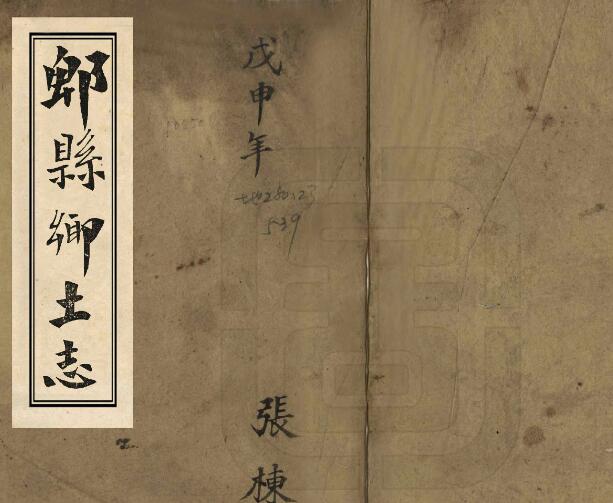 郫縣鄉土志
戊申年
地280.123
539
張棟